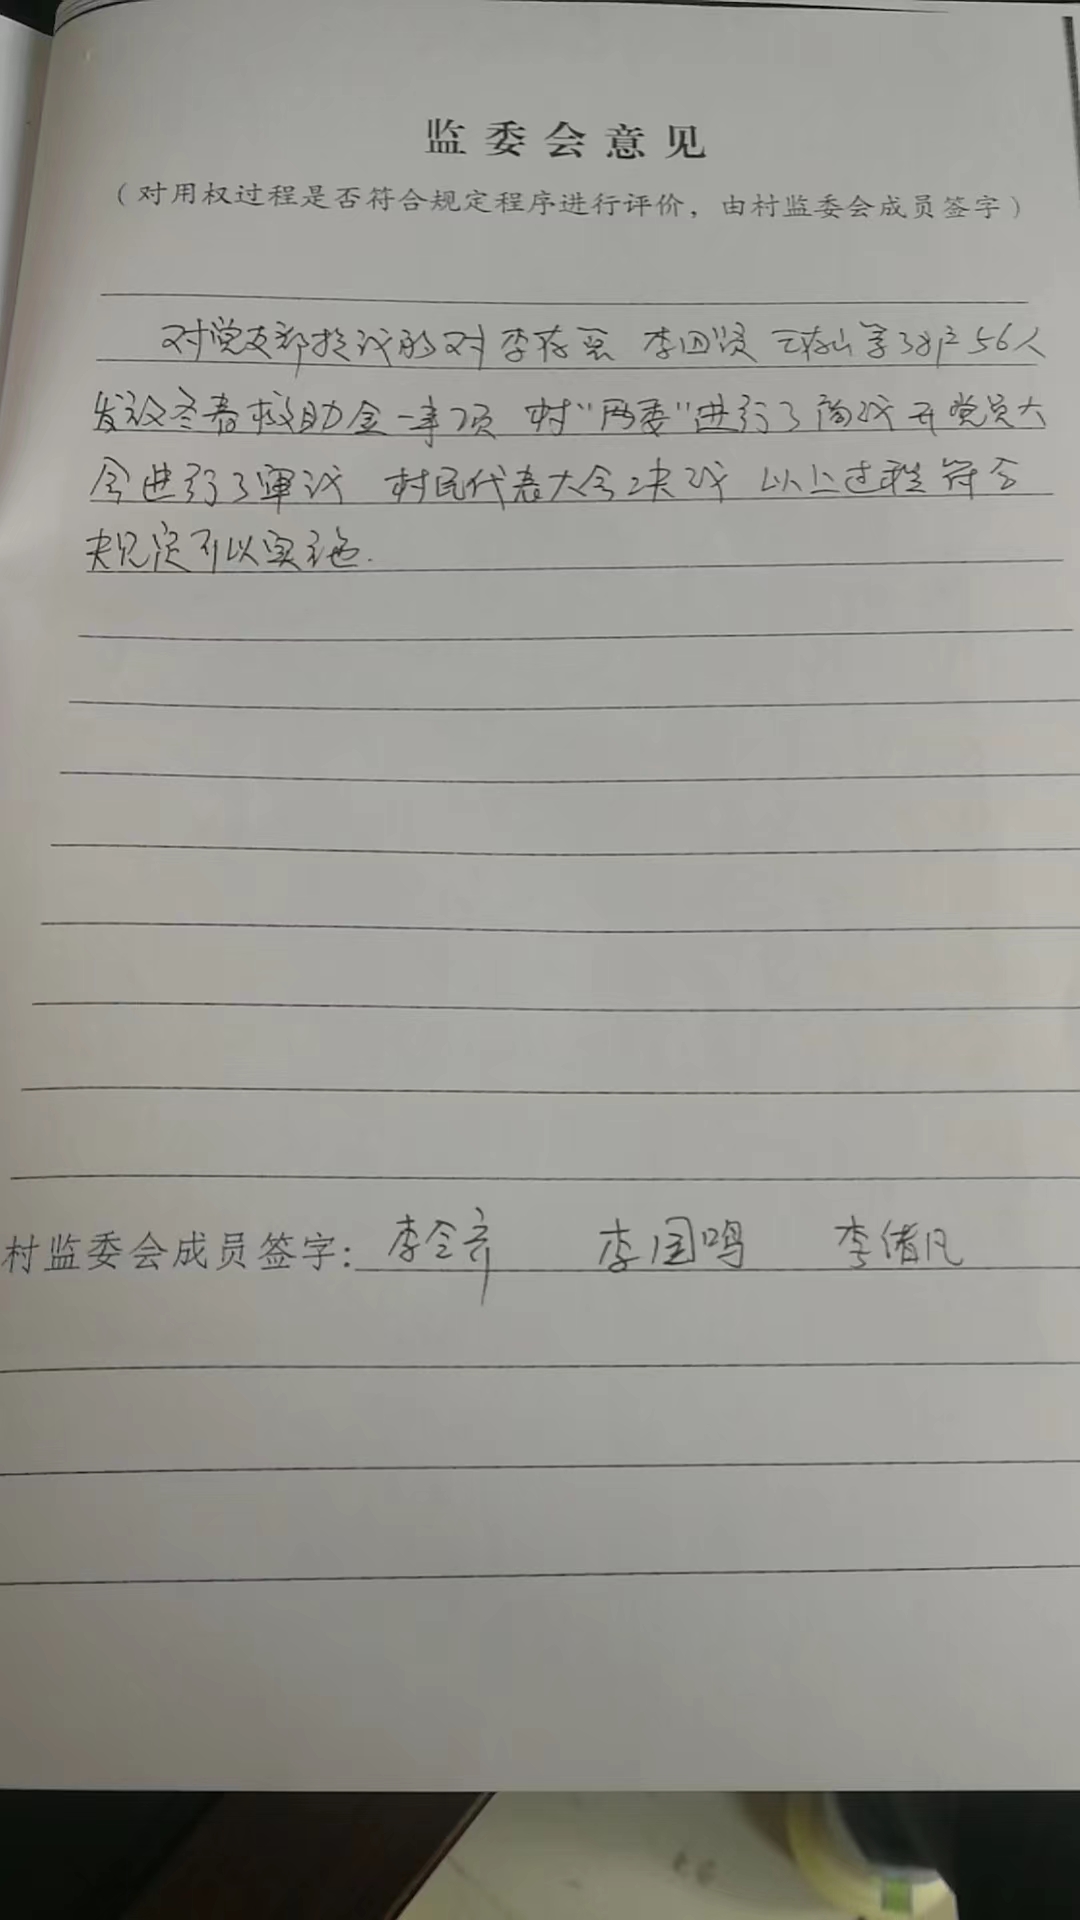 监委会意见
（对用权过程是否符合规定程序进行评价，由村监委会成员签字）
对党支部提议的对李存恶 李四贤 王存山等38户56人
发放冬春救助金一事项 村“两委”进行了商议 开党员大
会进行了审议 村民代表大会决议 以上过程符合
规定可以实施.
村监委会成员签字：李全齐 李国鸣 李绪凡